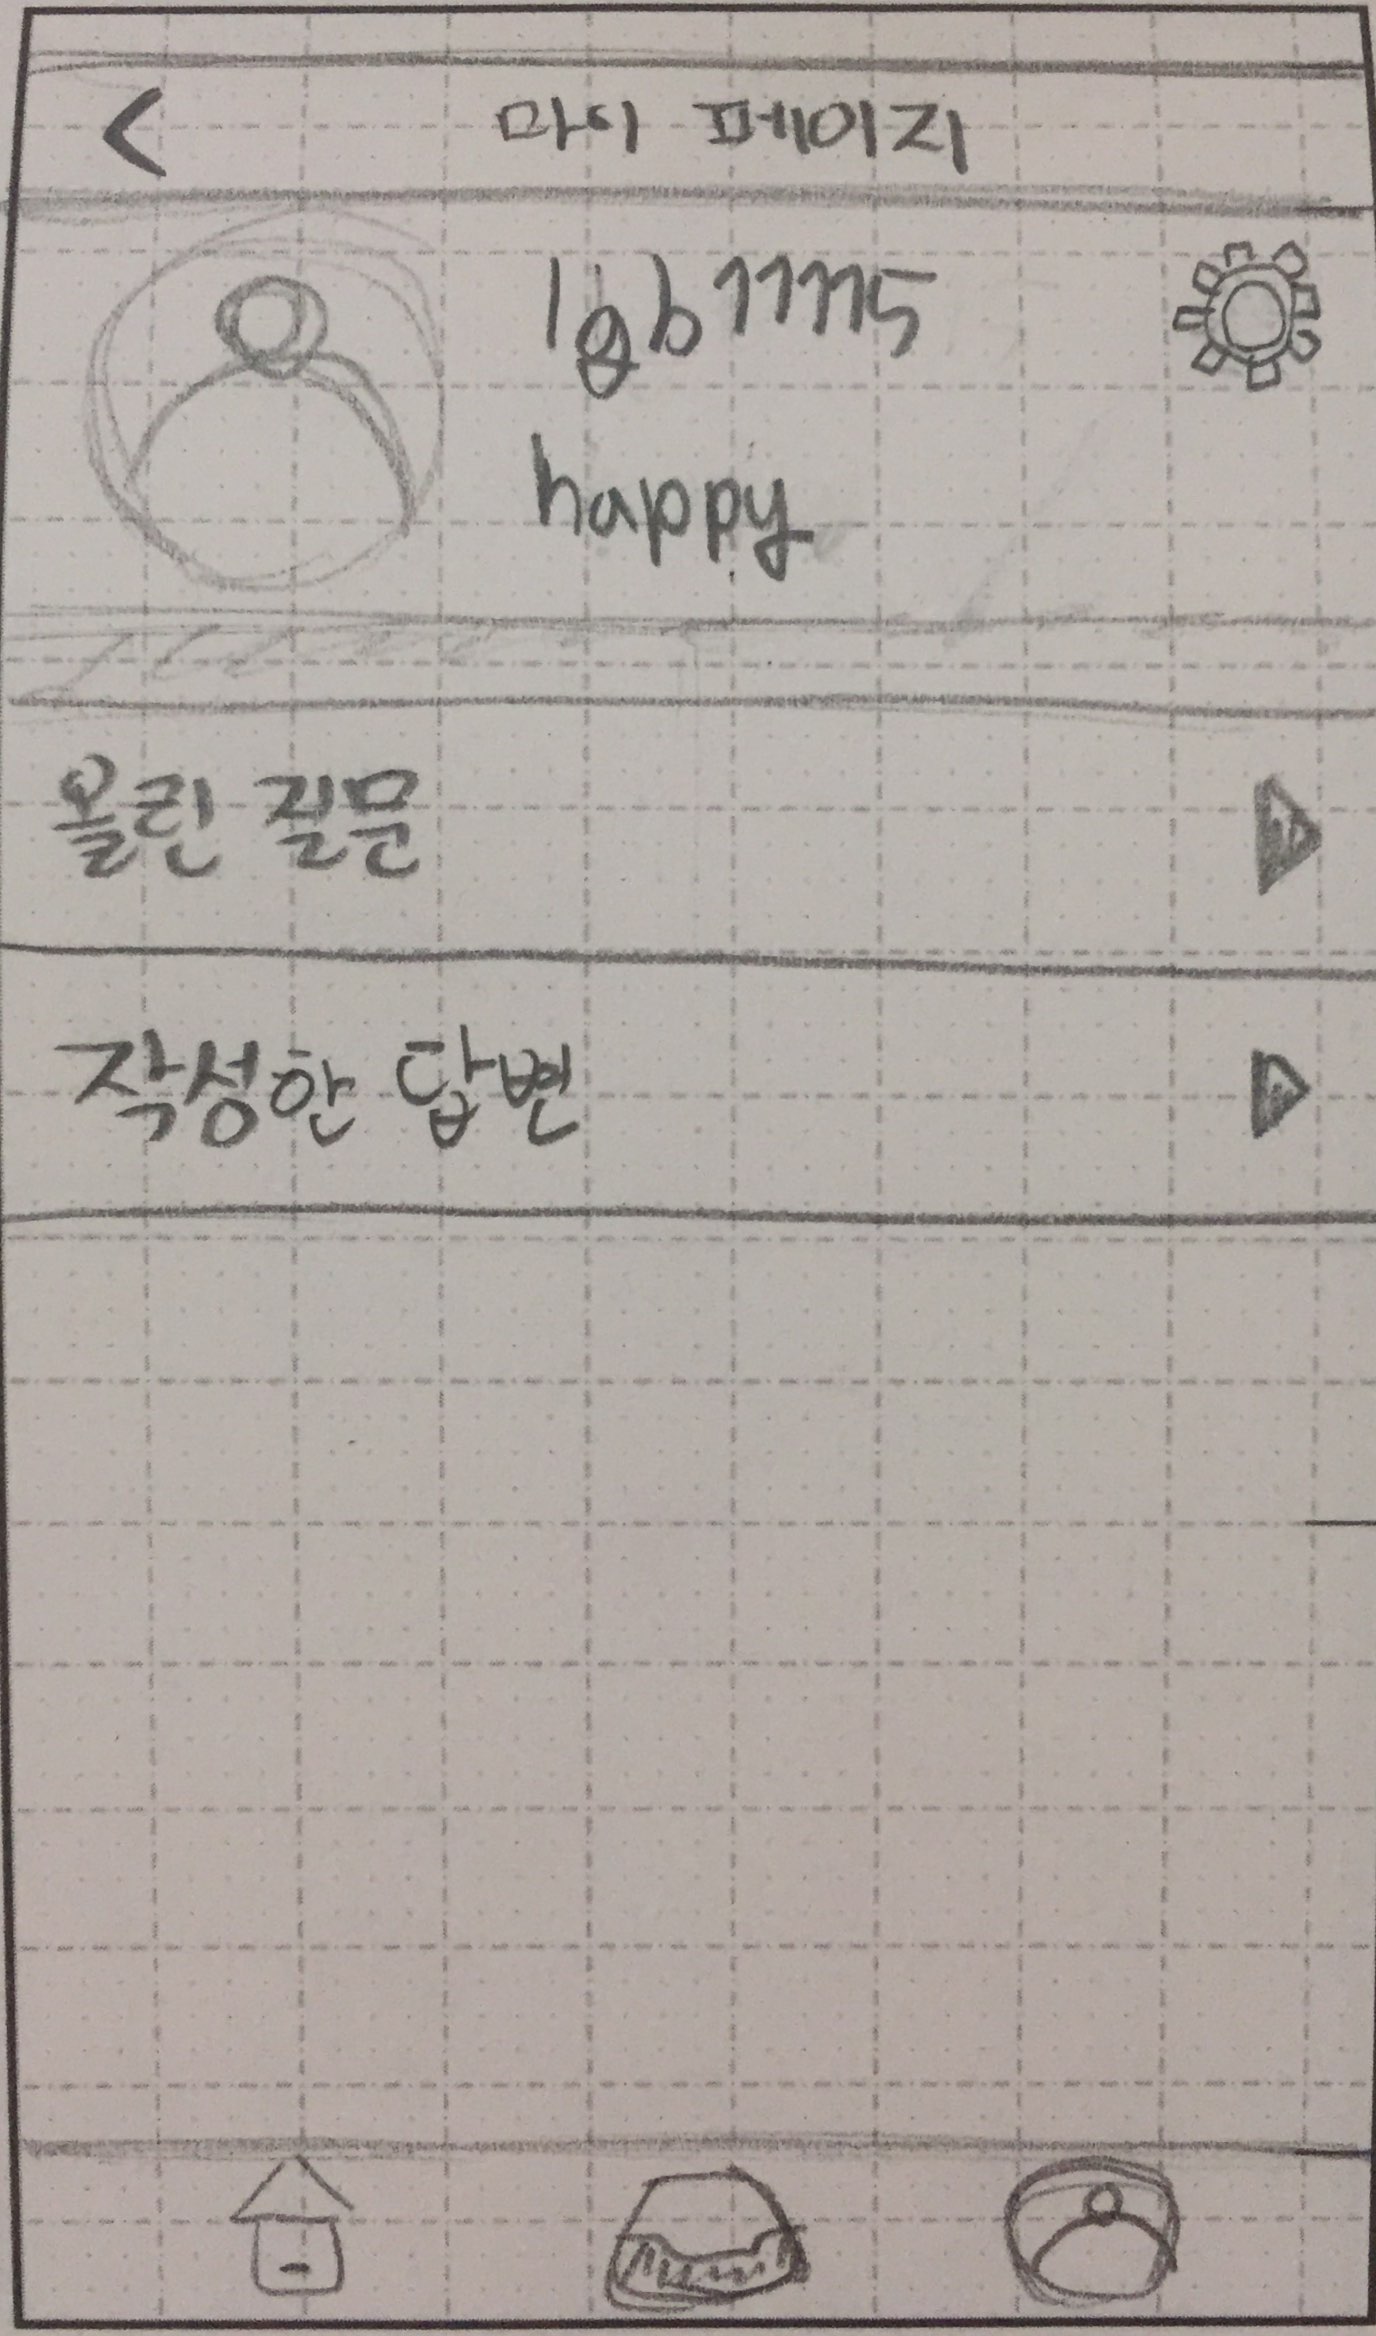 <
마이 페이지
lgb11115
happy
올린 질문
작성한 답변